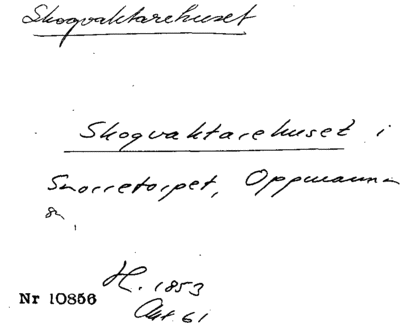 Skogvaktarehuset
Skogvaktarehuset i
Snorretorpet, Oppmanna
sn,
H. 1853
Akt. 61
Nr 10856